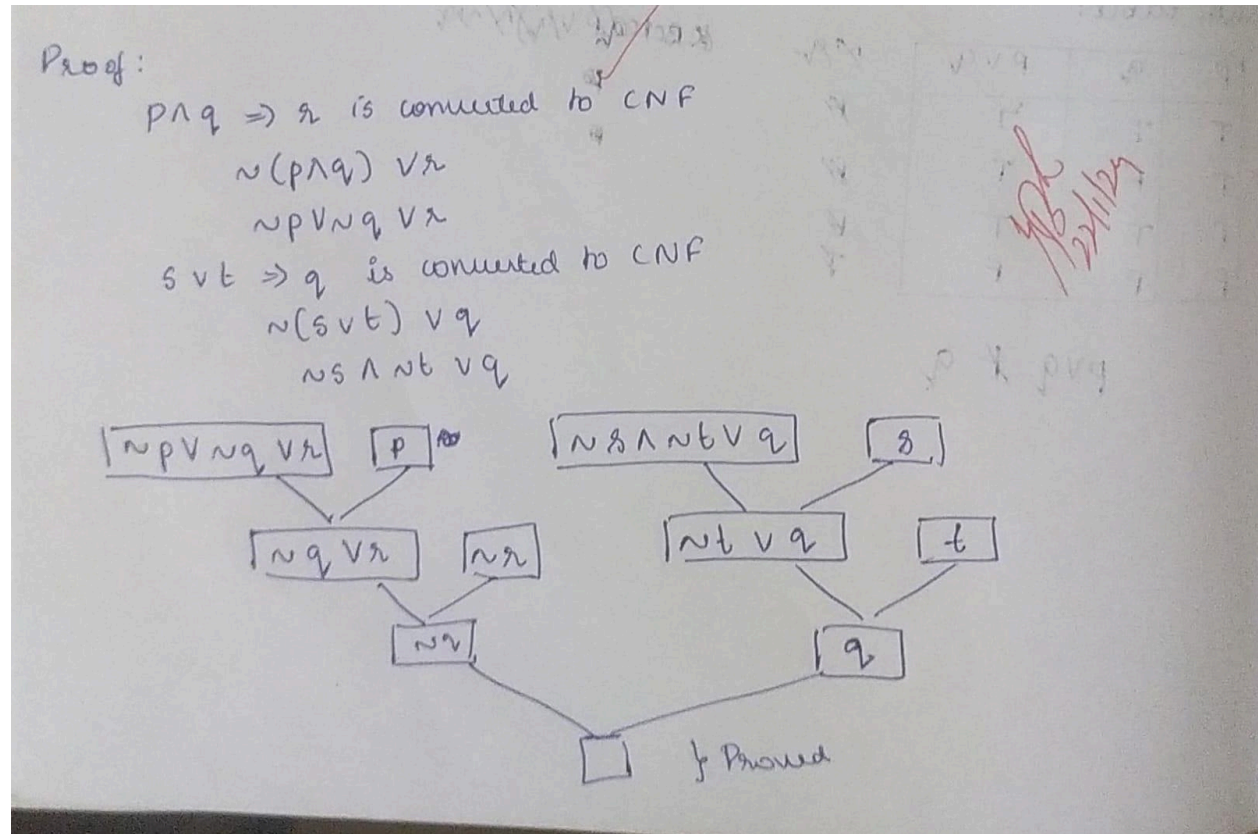 Proof:
p∧q => r is converted to CNF
~(p∧q) ∨r
~p∨~q ∨r
s∨t => q is converted to CNF
~(s∨t) ∨q
~s ∧ ~t ∨q
~p∨~q ∨r p ~s∧~t∨q s
~q ∨r ~r ~t ∨ q t
~q q
} Proved
22/1/24